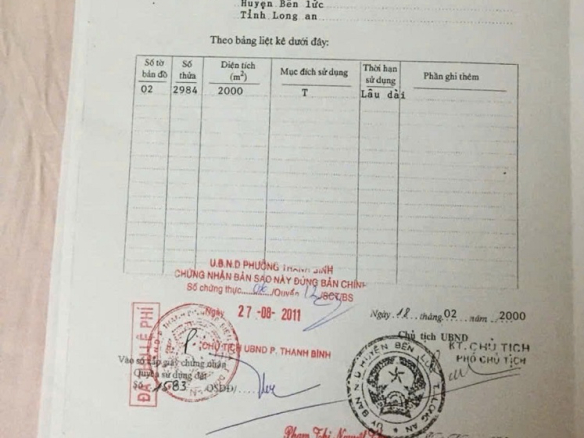 Huyện Bến lức
Tỉnh Long an
Theo bảng liệt kê dưới đây:
Số tờ bản đồ
Số thửa
Diện tích (m²)
Mục đích sử dụng
Thời hạn sử dụng
Phần ghi thêm
02 2984 2000 T Lâu dài
U.B.N.D PHƯỜNG THANH BÌNH
CHỨNG NHẬN BẢN SAO NÀY ĐÚNG BẢN CHÍNH
Số chứng thực /Quyển /SCT/BS
Ngày 27 -08- 2011
Ngày 18 tháng 02 năm 2000
Chủ tịch UBND
CHỦ TỊCH UBND P. THANH BÌNH
KT. CHỦ TỊCH
PHÓ CHỦ TỊCH
Vào sổ cấp giấy chứng nhận
Quyền sử dụng đất
Số 1583 QSDĐ/
Phạm Thị